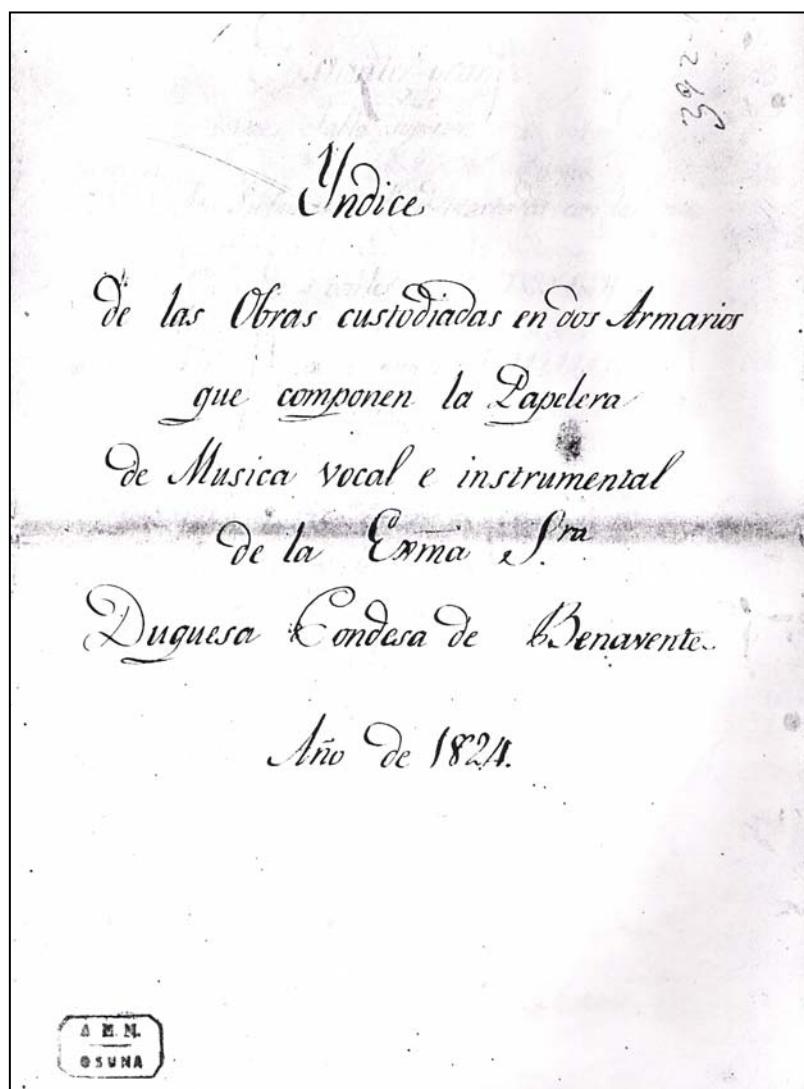 392-
Yndice
de las Obras custodiadas en dos Armarios
que componen la Papelera
de Musica vocal e instrumental
de la Exma S.ra
Duquesa Condesa de Benavente.
Año de 1824.
A H N.
OSUNA